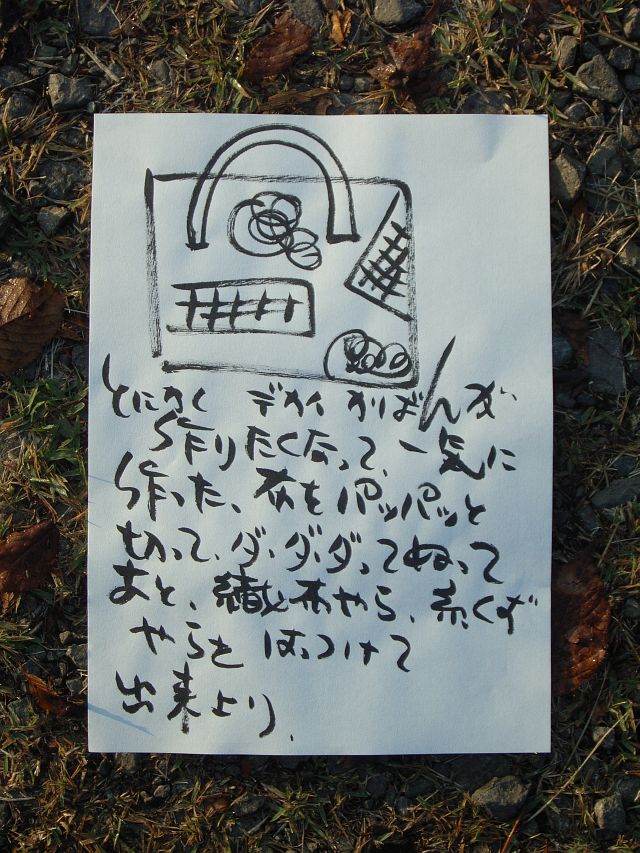 とにかく デカイ かばんが
作りたくなって、一気に
作った、布をパッパッと
切って、ダ・ダ・ダってぬって
あと、織布やら、糸くず
やらを はっつけて
出来より.